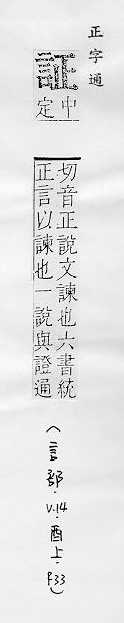 正字通
証
中
定
切音正說文諫也六書統
正言以諫也一說與證通
(言部.V.14.酉上.P33)